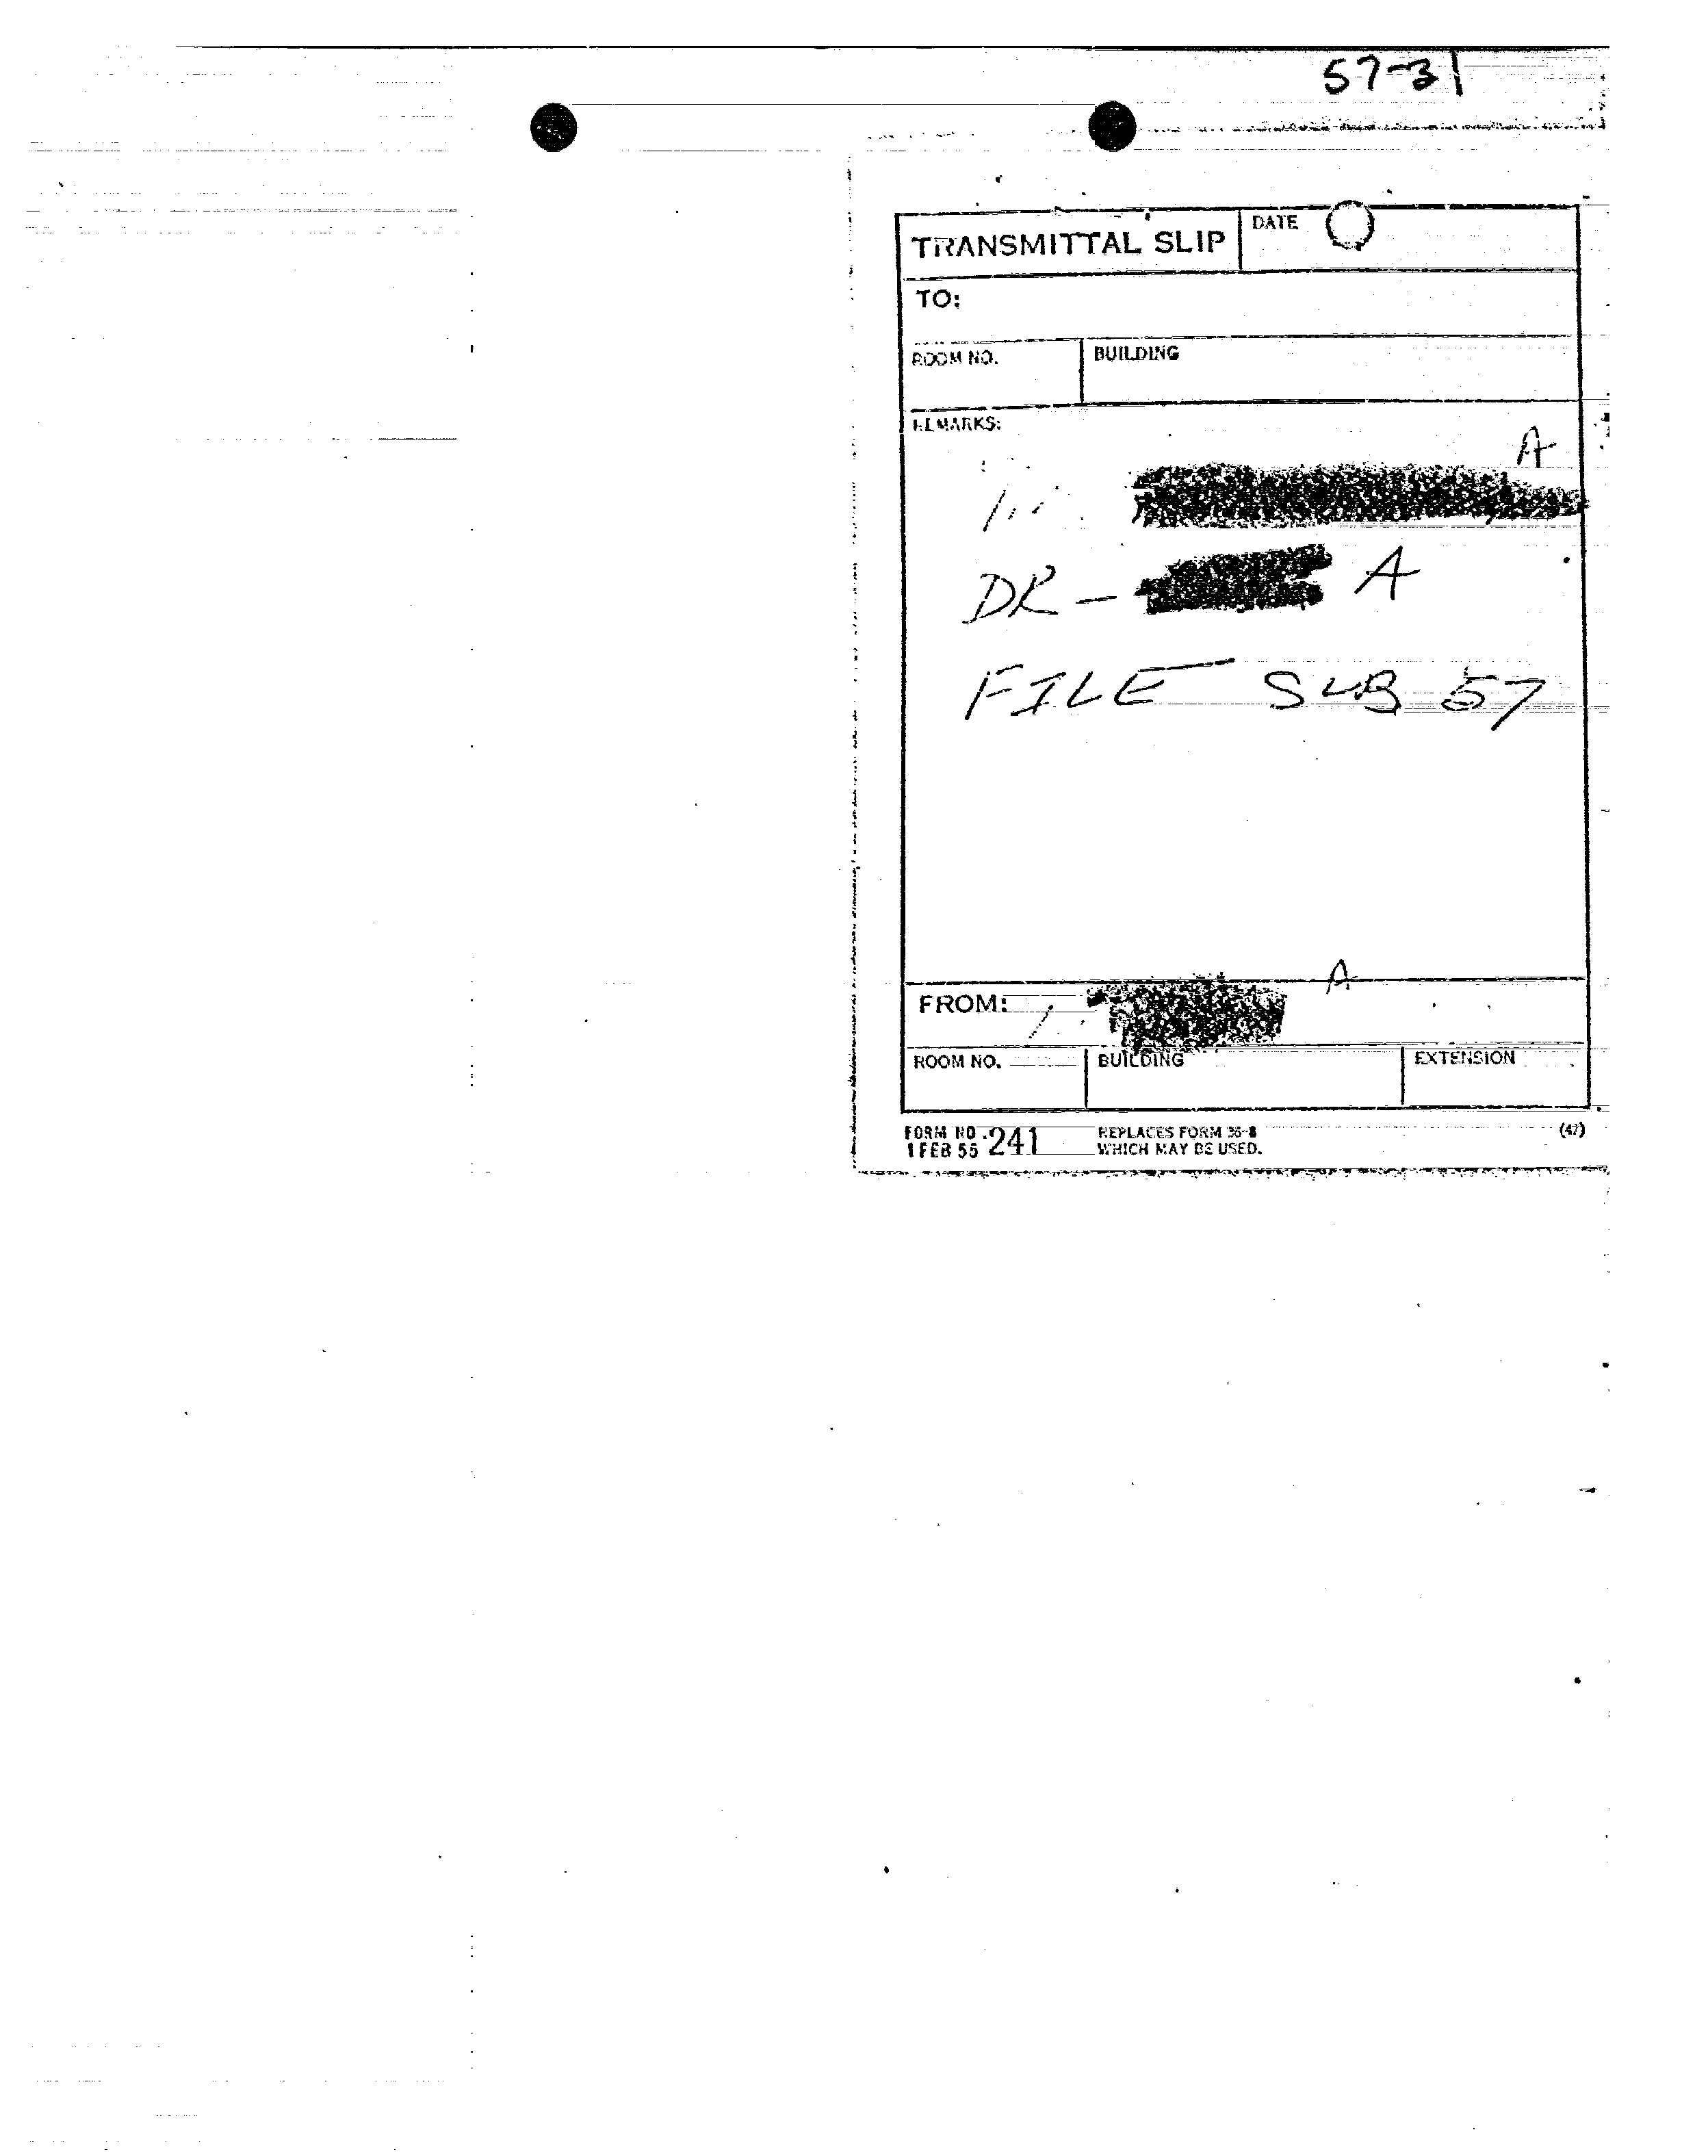 57-31
TRANSMITTAL SLIP
DATE
TO:
ROOM NO.
BUILDING
REMARKS:
A
DR - A
FILE SUB 57
A
FROM:
ROOM NO.
BUILDING
EXTENSION
FORM NO.
1 FEB 55
241
REPLACES FORM 36-8
WHICH MAY BE USED.
(47)